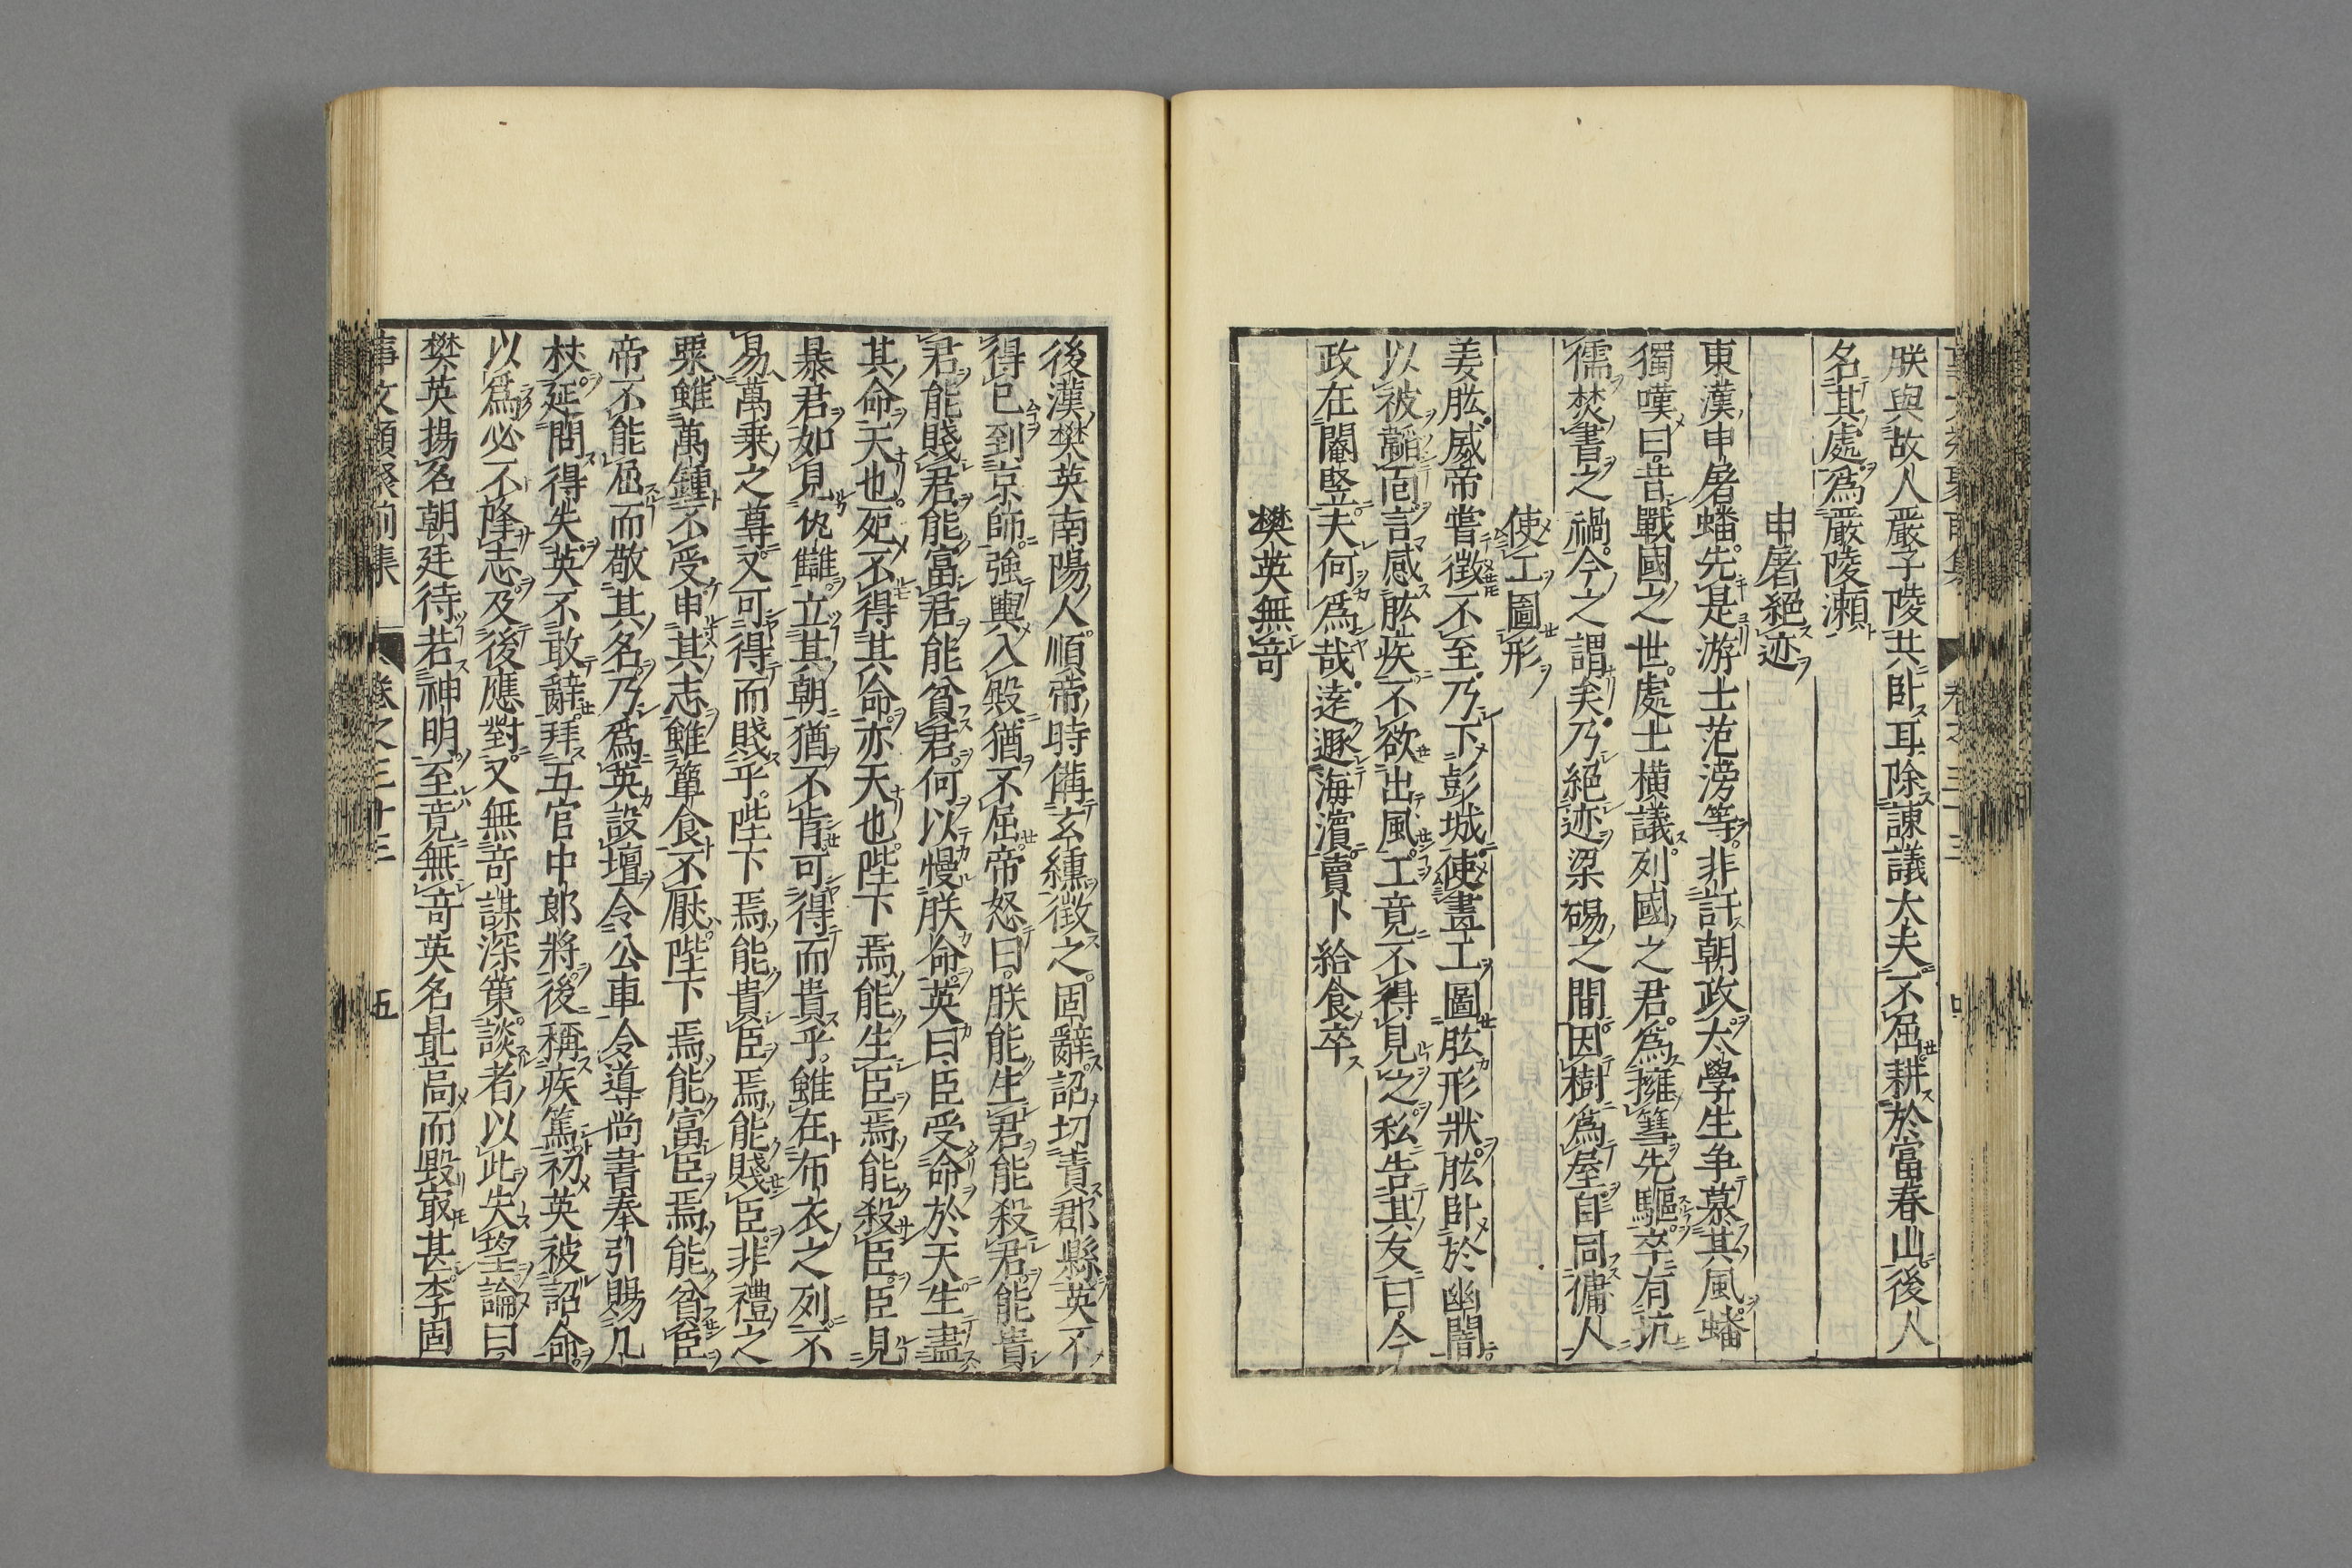 朕與故人嚴子陵共臥耳除諫議大夫不屈耕於富春山後人
名其處爲嚴陵瀨
申屠絕迹
東漢申屠蟠先是游士范滂等非訐朝政太學生争慕其風蟠
獨嘆曰昔戰國之世處士橫議列國之君爲擁篲先驅卒有坑
儒焚書之禍今之謂矣乃絕迹梁碭之間因樹爲屋自同傭人
使工圖形
姜肱威帝嘗徵不至乃下彭城使畫工圖肱形狀肱臥於幽闇
以被韜面言感肱疾不欲出風工竟不得見之私告其友曰今
政在閹豎夫何爲哉遠遯海濵賣卜給食卒
樊英無竒
後漢樊英南陽人順帝時備玄纁徴之固辭詔切責郡縣英不
得已到京師強輿入殿猶不屈帝怒曰朕能生君能殺君能貴
君能賤君能富君能貧君何以慢朕命英曰臣受命於天生盡
其命天也死不得其命亦天也陛下焉能生臣焉能殺臣臣見
暴君如見仇讎立其朝猶不肯可得而貴乎雖在布衣之列不
易萬乗之尊又可得而賤乎陛下焉能貴臣焉能賤臣非禮之
粟雖萬鍾不受申其志雖簞食不厭陛下焉能富臣焉能貧臣
帝不能屈而敬其名乃爲英設壇令公車令導尚書奉引賜几
杖延問得失英不敢辭拜五官中郎將後稱疾篤初英被詔命
以爲必不降志及後應對又無竒謀深策談者以此失望論曰
樊英揚名朝廷待若神明至竟無竒英名最高而毀冣甚李固
事文類聚前集 卷之三十三 五